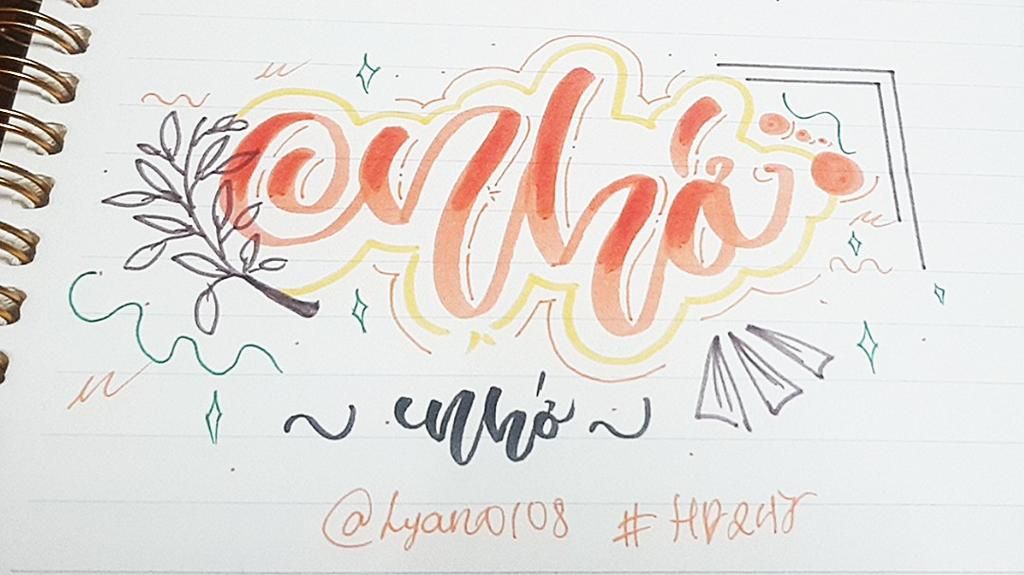 nhớ
~ nhớ ~
@Lyano108 #HD247